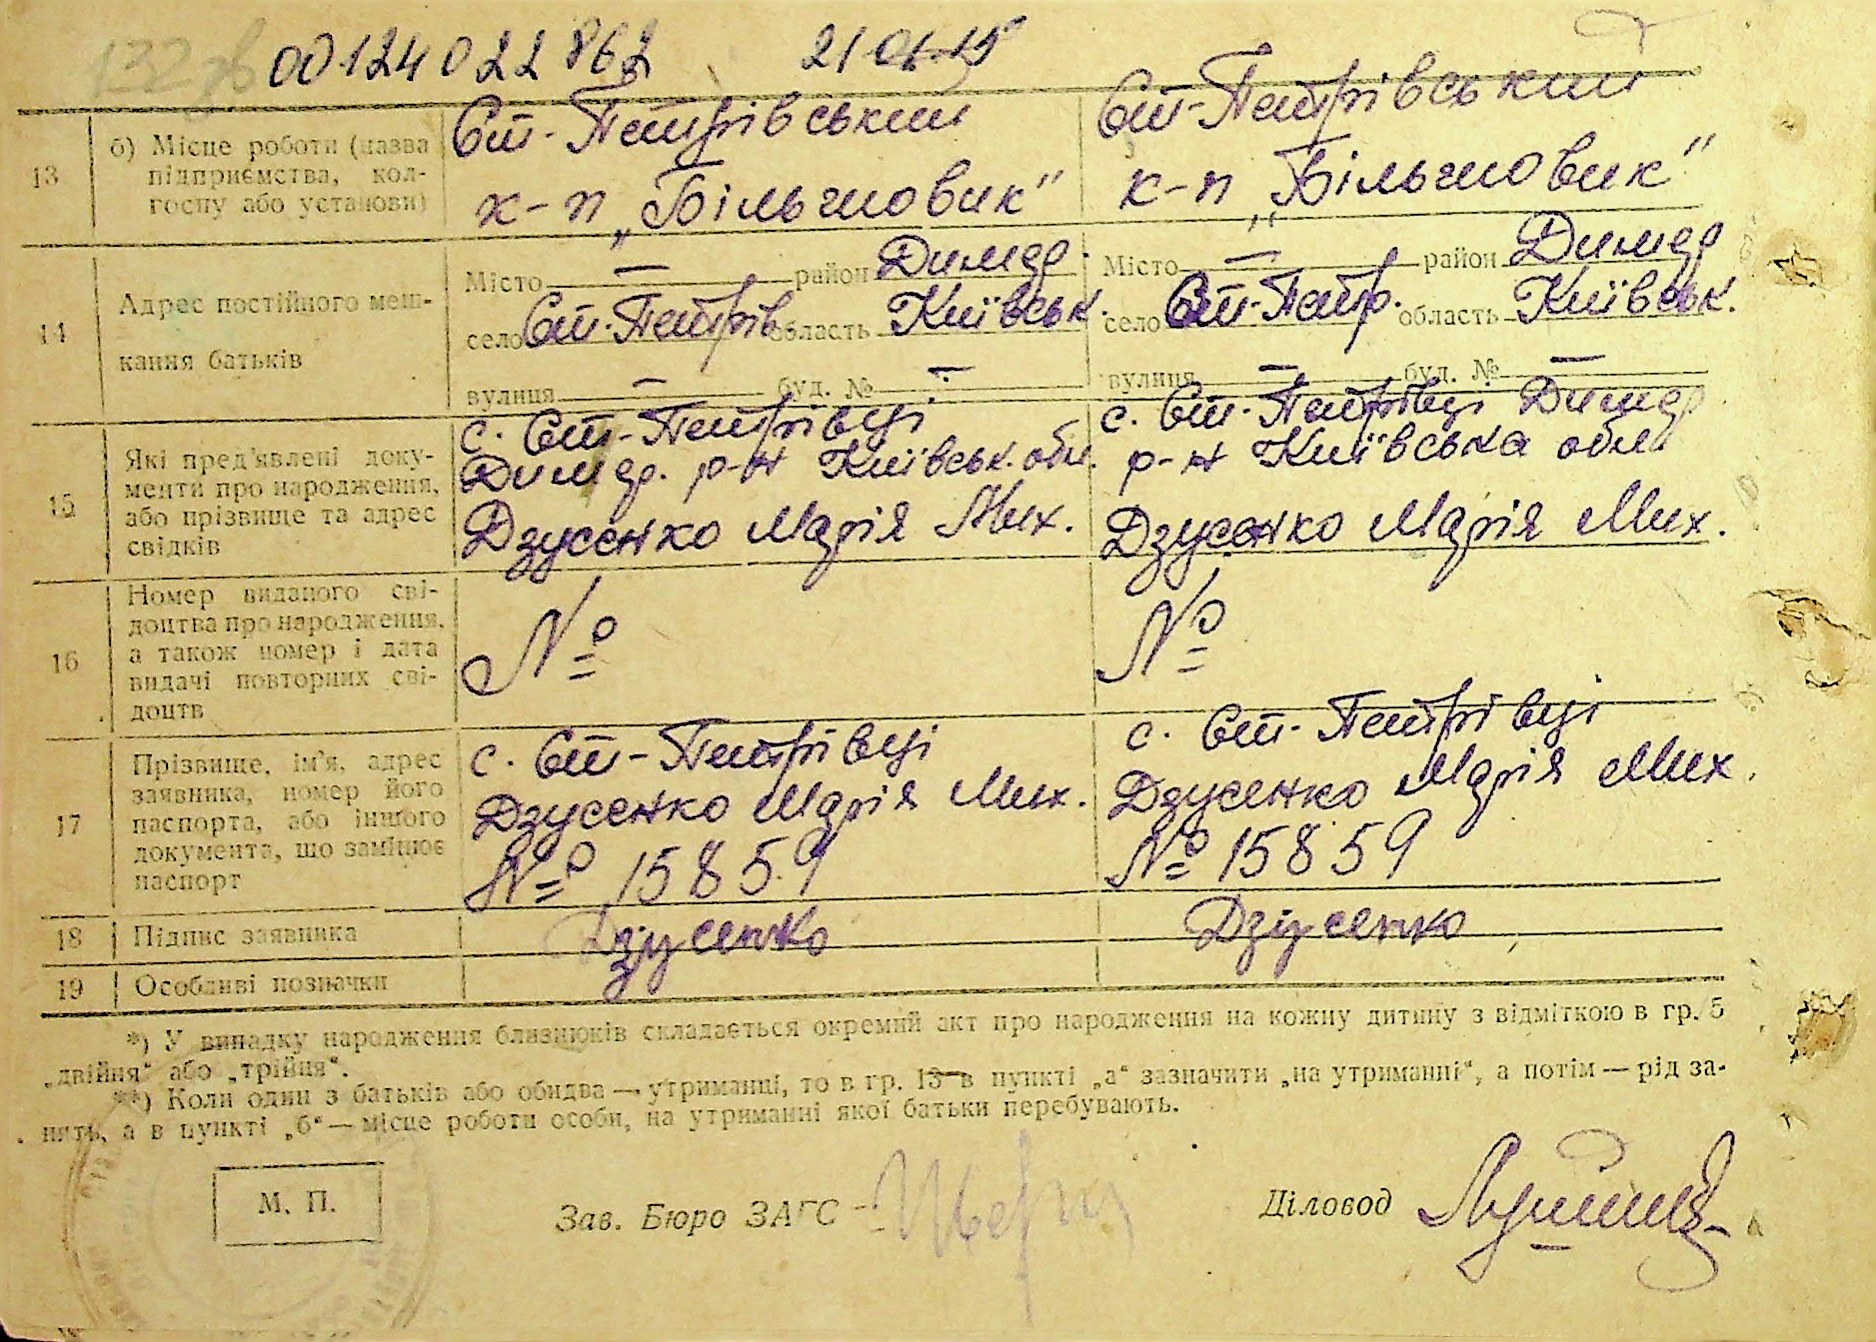 00124022862 21 01 15
13 б) Місце роботи (назва підприємства, колгоспу або установи)
Ст-Петрівський
к-п „Більшовик"
Ст-Петрівський
к-п „Більшовик"
14 Адрес постійного мешкання батьків
Місто — район Димер.
село Ст.-Петрів. область Київськ.
вулиця — буд. № —
Місто — район Димер
село Ст.-Петр. область Київськ.
вулиця — буд. № —
15 Які пред'явлені документи про народження, або прізвище та адрес свідків
с. Ст.-Петрівці
Димер. р-н Київськ. обл.
Дзусенко Марія Мих.
с. Ст.-Петрівці Димер
р-н Київська обл.
Дзусенко Марія Мих.
16 Номер виданого свідоцтва про народження, а також номер і дата видачі повторних свідоцтв
№
№
17 Прізвище, ім'я, адрес заявника, номер його паспорта, або іншого документа, що замінює паспорт
с. Ст-Петрівці
Дзусенко Марія Мих.
№ 15859
с. Ст-Петрівці
Дзусенко Марія Мих.
№ 15859
18 Підпис заявника
Дзусенко
Дзусенко
19 Особливі позначки
*) У випадку народження близнюків складається окремий акт про народження на кожну дитину з відміткою в гр. 5
„двійня" або „трійня".
**) Коли один з батьків або обидва — утриманці, то в гр. 13 в пункті „а" зазначити „на утриманні", а потім — рід за-
нять, а в пункті „б" — місце роботи особи, на утриманні якої батьки перебувають.
М. П.
Зав. Бюро ЗАГС
Діловод